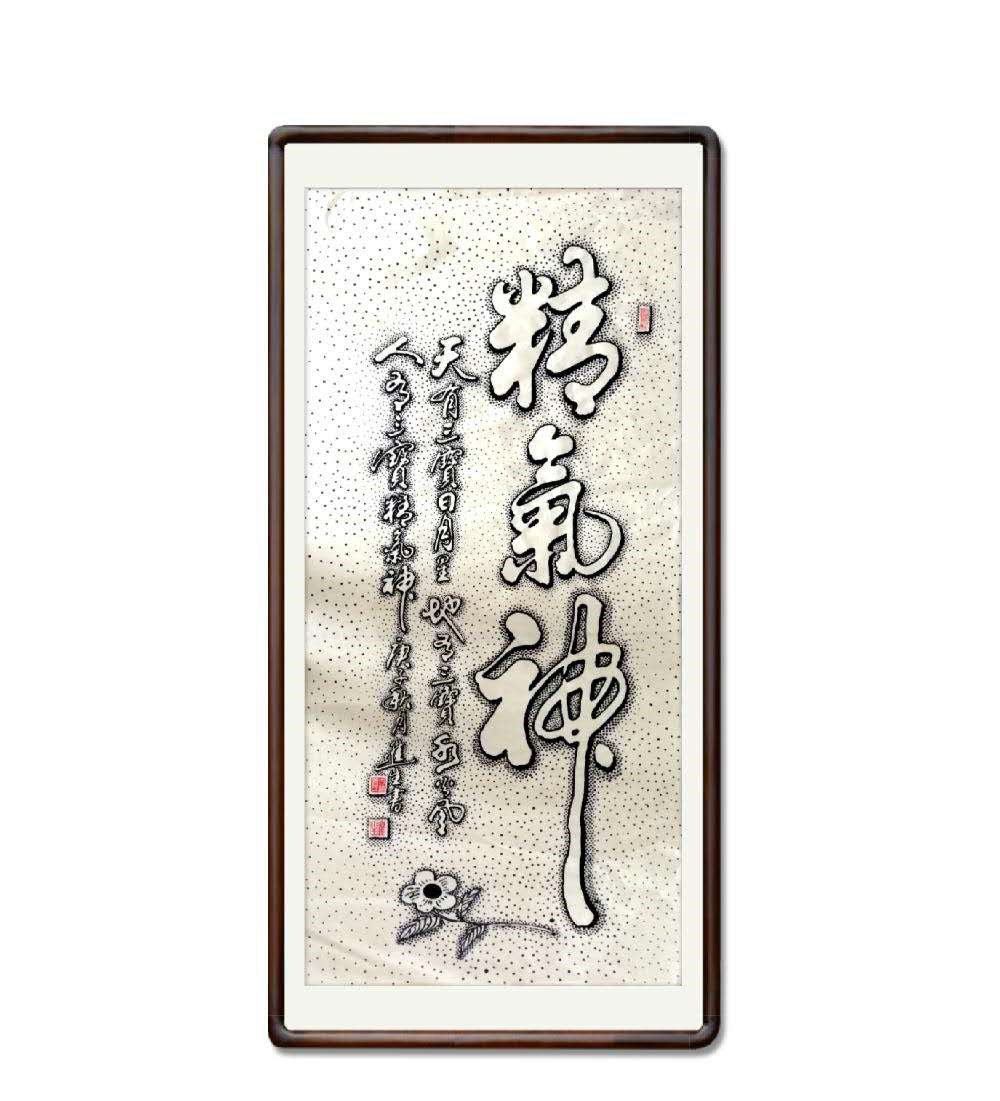 精氣神
天有三寶日月星地有三寶水火風
人有三寶精氣神庚子秋月